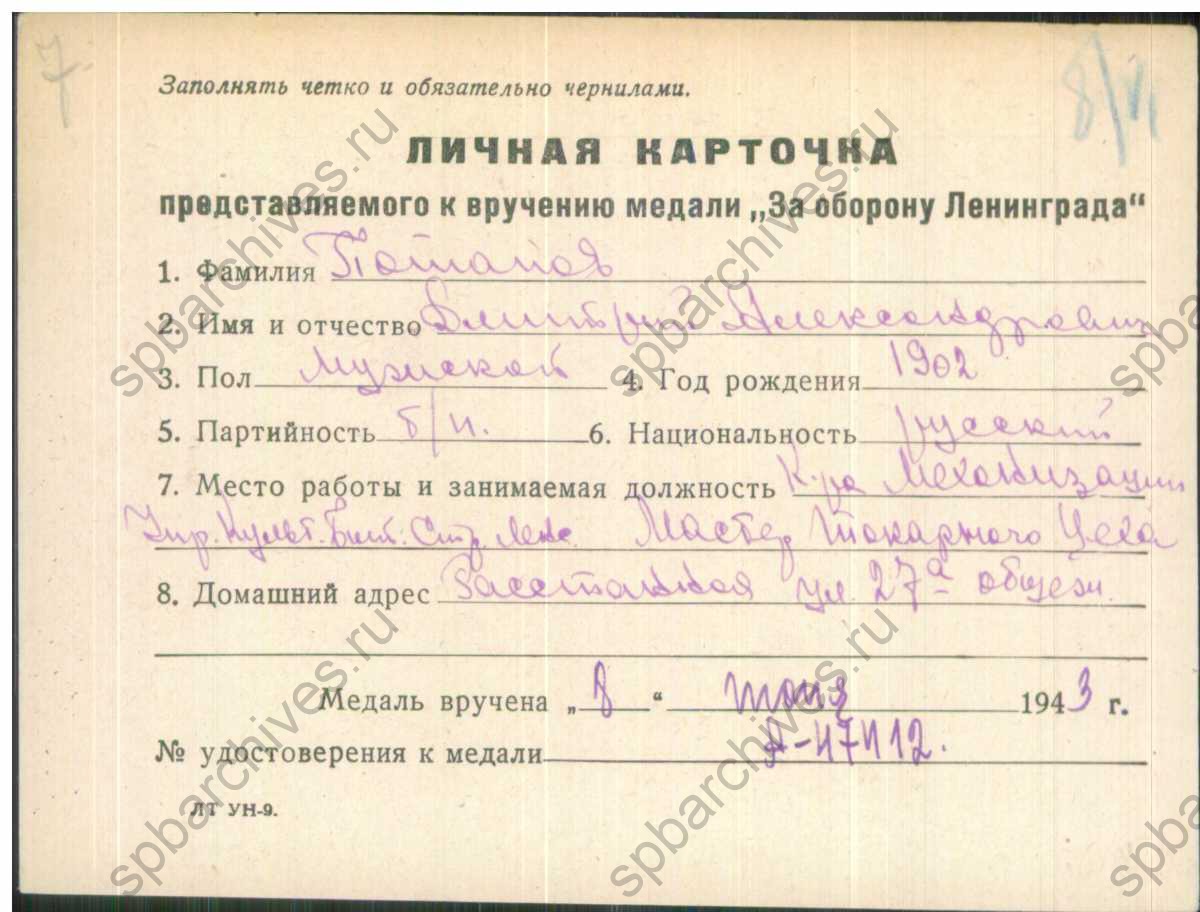 7.
8/VI
Заполнять четко и обязательно чернилами.
ЛИЧНАЯ КАРТОЧКА
представляемого к вручению медали „За оборону Ленинграда“
1. Фамилия Потапов
2. Имя и отчество Дмитрий Александрович
3. Пол мужской 4. Год рождения 1902
5. Партийность б/п. 6. Национальность русский
7. Место работы и занимаемая должность К-ра Механизации
Упр. Культ. Быт. Стр. Лен. Мастер Токарного Цеха
8. Домашний адрес Заставная ул. 27а общеж.
Медаль вручена „8“ июня 1943 г.
№ удостоверения к медали А-47412.
ЛТ УН-9.
spbarchives.ru